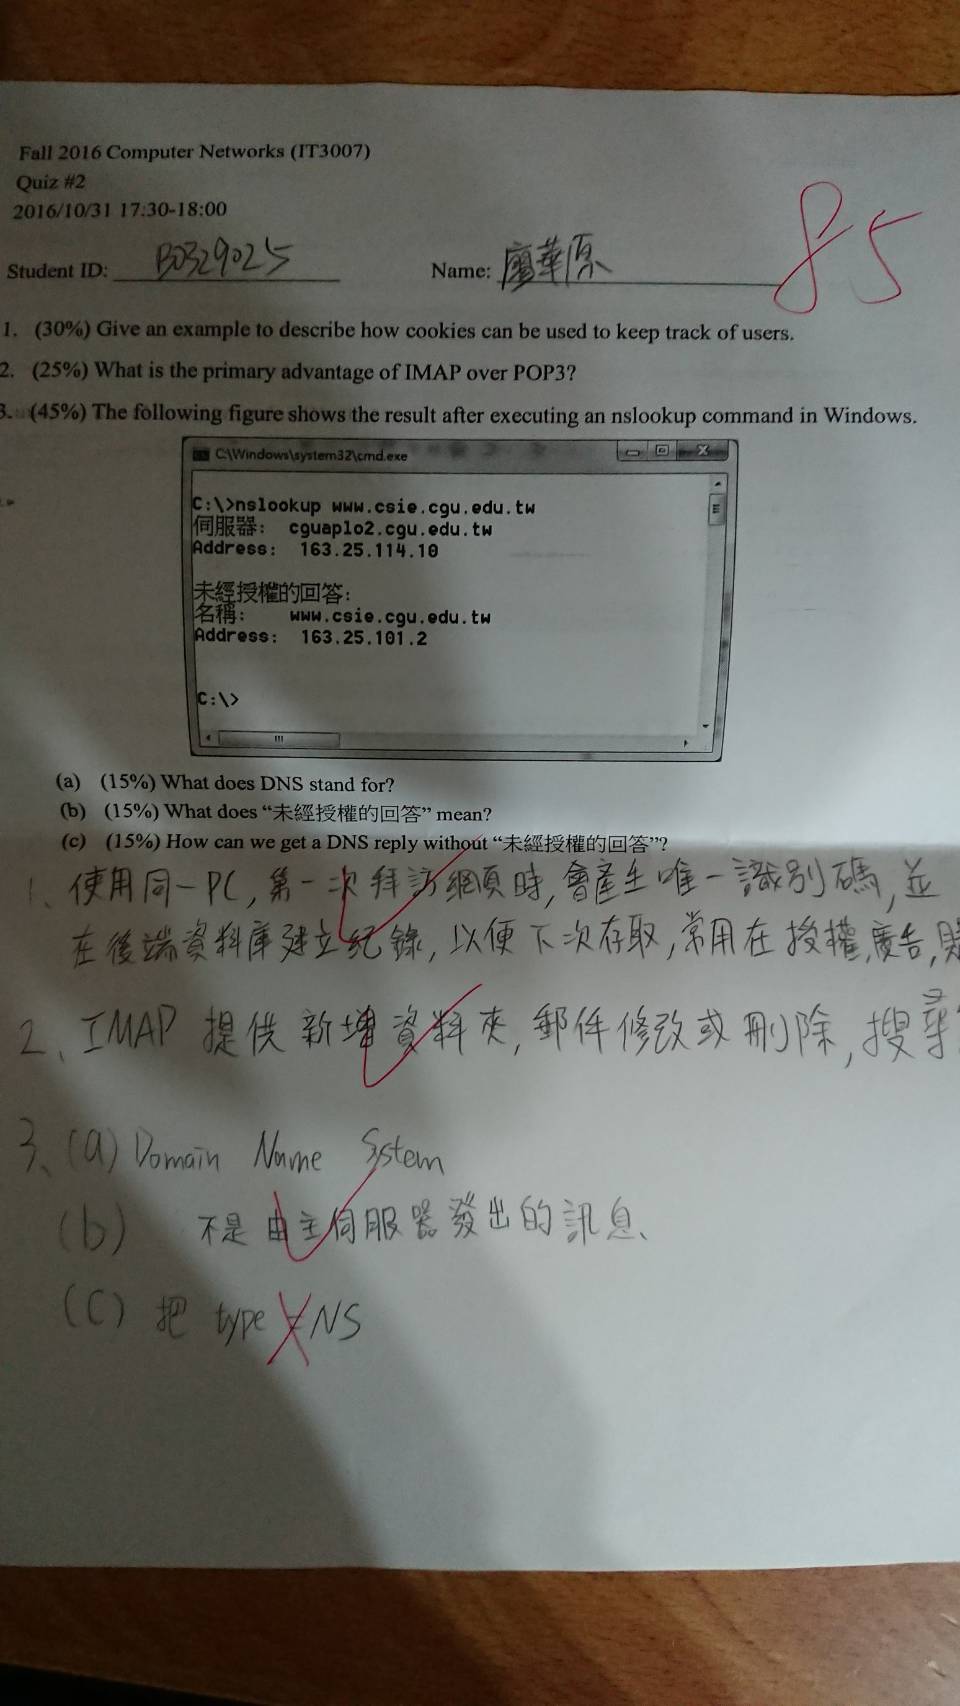 Fall 2016 Computer Networks (IT3007)
Quiz #2
2016/10/31 17:30-18:00
85
Student ID: B0329025 Name: 廖華原
1. (30%) Give an example to describe how cookies can be used to keep track of users.
2. (25%) What is the primary advantage of IMAP over POP3?
3. (45%) The following figure shows the result after executing an nslookup command in Windows.
C:\Windows\system32\cmd.exe
C:\>nslookup www.csie.cgu.edu.tw
伺服器: cguaplo2.cgu.edu.tw
Address: 163.25.114.10
未經授權的回答:
名稱: www.csie.cgu.edu.tw
Address: 163.25.101.2
C:\>
(a) (15%) What does DNS stand for?
(b) (15%) What does “未經授權的回答” mean?
(c) (15%) How can we get a DNS reply without “未經授權的回答”?
1、使用同一PC, 第一次拜訪網頁時, 會產生唯一識別碼, 並
在後端資料庫建立紀錄, 以便下次存取, 常用在授權, 廣告,
2、IMAP 提供新增資料夾, 郵件修改或刪除, 搜尋
3、(a) Domain Name System
(b) 不是由主伺服器發出的訊息、
(C) 把 type = NS